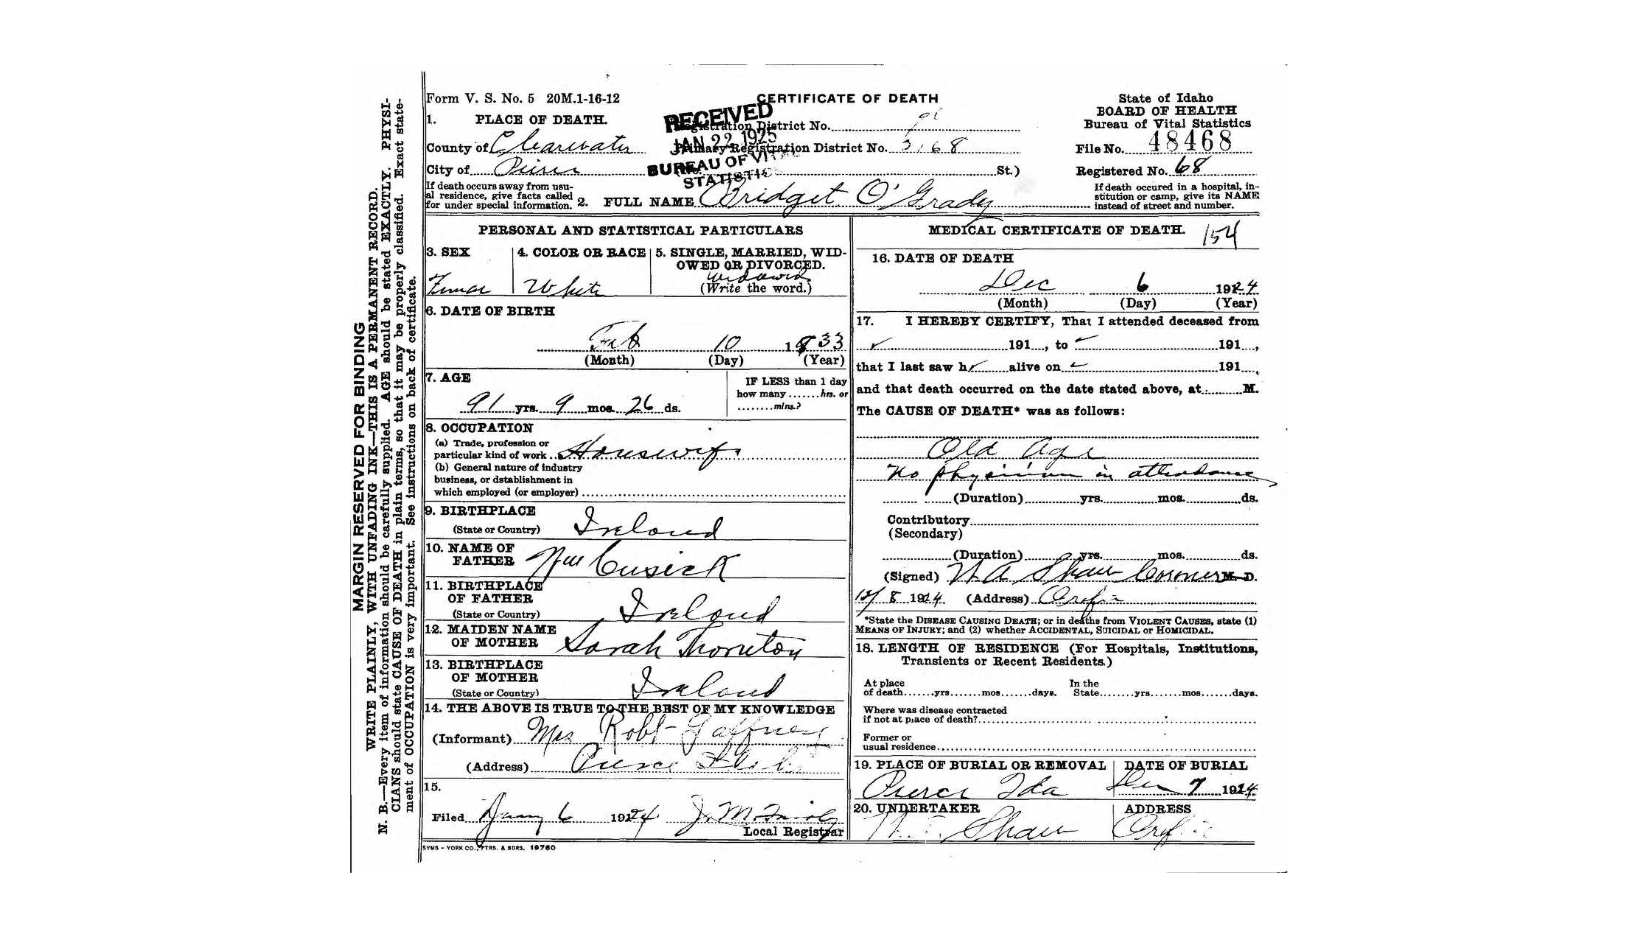 MARGIN RESERVED FOR BINDING
WRITE PLAINLY, WITH UNFADING INK—THIS IS A PERMANENT RECORD.
N. B.—Every item of information should be carefully supplied. AGE should be stated EXACTLY. PHYSI-
CIANS should state CAUSE OF DEATH in plain terms, so that it may be properly classified. Exact state-
ment of OCCUPATION is very important. See instructions on back of certificate.
Form V. S. No. 5 20M.1-16-12
CERTIFICATE OF DEATH
State of Idaho
BOARD OF HEALTH
Bureau of Vital Statistics
File No. 48468
Registered No. 68
If death occured in a hospital, in-
stitution or camp, give its NAME
instead of street and number.
RECEIVED
JAN 22 1925
BUREAU OF VITAL
STATISTICS
1. PLACE OF DEATH.
Registration District No.
County of Clearwater
Primary Registration District No. 3168
City of Pierce St.)
If death occurs away from usu-
al residence, give facts called
for under special information.
2. FULL NAME Bridget O'Grady
PERSONAL AND STATISTICAL PARTICULARS
3. SEX
Female
4. COLOR OR RACE
White
5. SINGLE, MARRIED, WID-
OWED OR DIVORCED.
Widowed
(Write the word.)
6. DATE OF BIRTH
Feb 10 1833
(Month) (Day) (Year)
7. AGE
91 yrs. 9 mos. 26 ds.
IF LESS than 1 day
how many ....... hrs. or
........ mins.?
8. OCCUPATION
(a) Trade, profession or
particular kind of work Housewife
(b) General nature of industry
business, or dstablishment in
which employed (or employer)
9. BIRTHPLACE
(State or Country) Ireland
10. NAME OF
FATHER Wm Cusick
11. BIRTHPLACE
OF FATHER
(State or Country) Ireland
12. MAIDEN NAME
OF MOTHER Sarah Thornton
13. BIRTHPLACE
OF MOTHER
(State or Country) Ireland
14. THE ABOVE IS TRUE TO THE BEST OF MY KNOWLEDGE
(Informant) Mrs Robt Gaffney
(Address) Pierce Idaho
15.
Filed Jany 6 1924
Local Registrar
SYMS - YORK CO., PTRS. & BDRS. 19760
MEDICAL CERTIFICATE OF DEATH. 154
16. DATE OF DEATH
Dec 6 1924
(Month) (Day) (Year)
17. I HEREBY CERTIFY, That I attended deceased from
191 , to 191 ,
that I last saw h alive on 191 ,
and that death occurred on the date stated above, at M.
The CAUSE OF DEATH* was as follows:
Old Age
No physician in attendance
(Duration) yrs. mos. ds.
Contributory
(Secondary)
(Duration) yrs. mos. ds.
(Signed) W A Shaw Coroner M. D.
12/8 1924. (Address) Orofino
*State the DISEASE CAUSING DEATH; or in deaths from VIOLENT CAUSES, state (1)
MEANS OF INJURY; and (2) whether ACCIDENTAL, SUICIDAL or HOMICIDAL.
18. LENGTH OF RESIDENCE (For Hospitals, Institutions,
Transients or Recent Residents.)
At place
of death.......yrs.......mos.......days.
In the
State.......yrs.......mos.......days.
Where was disease contracted
if not at place of death?
Former or
usual residence
19. PLACE OF BURIAL OR REMOVAL
Pierce Ida
DATE OF BURIAL
Dec 7 1924
20. UNDERTAKER
Shaw
ADDRESS
Orofino